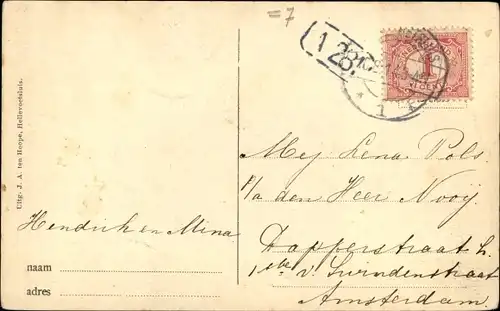 =7
128
1
Mej Lena Pols.
p/a den Heer Nooij
Dapperstraat h.
1ste v. Swindenstraat
Amsterdam.
Hendrik en Mina
naam
adres
Uitg. J. A. ten Hoope, Hellevoetsluis.